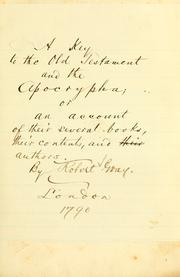 A Key
to the Old Testament
and the
Apocrypha;
or
an account
of their several books,
their contents, and their
authors.
By Robert Gray.
London
1790